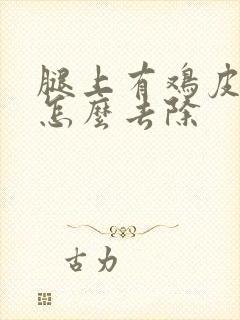 腿上有鸡皮
怎麽去除
古力